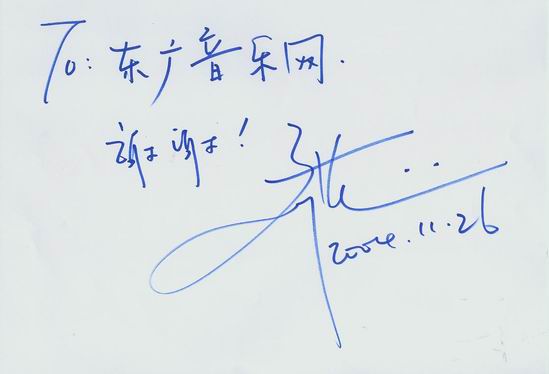 To: 东广音乐网.
谢谢!
2004.11.26